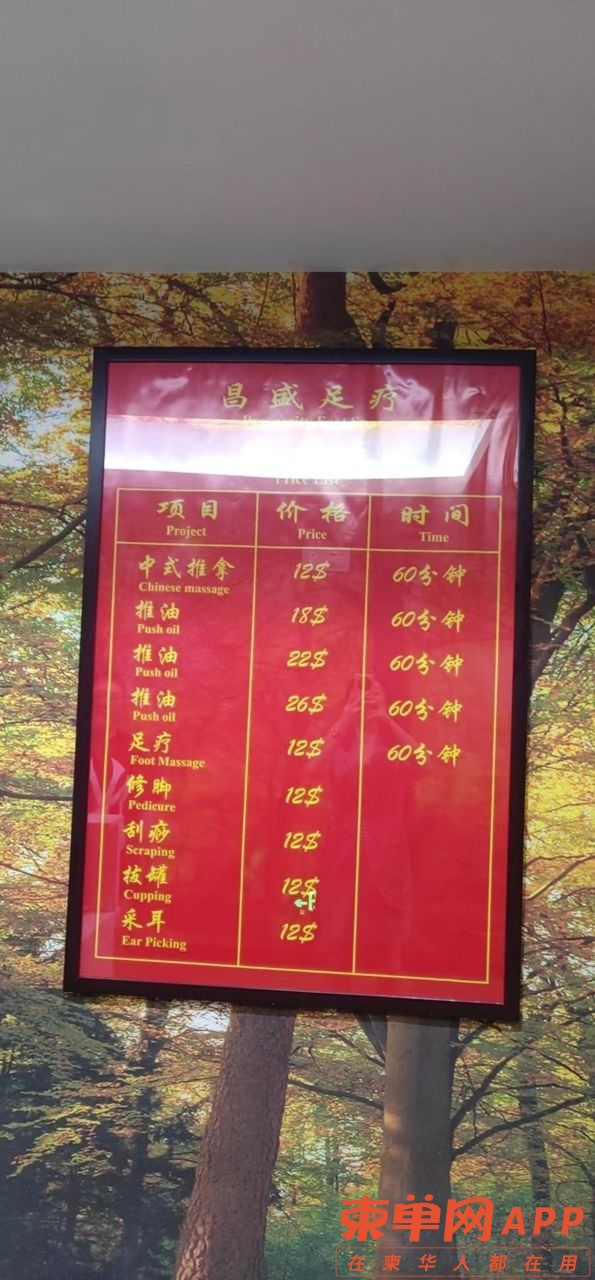 昌盛足疗
Price List
项目 价格 时间
Project Price Time
中式推拿 12$ 60分钟
Chinese massage
推油 18$ 60分钟
Push oil
推油 22$ 60分钟
Push oil
推油 26$ 60分钟
Push oil
足疗 12$ 60分钟
Foot Massage
修脚 12$
Pedicure
刮痧 12$
Scraping
拔罐 12$
Cupping
采耳 12$
Ear Picking
柬单网APP
在柬华人都在用